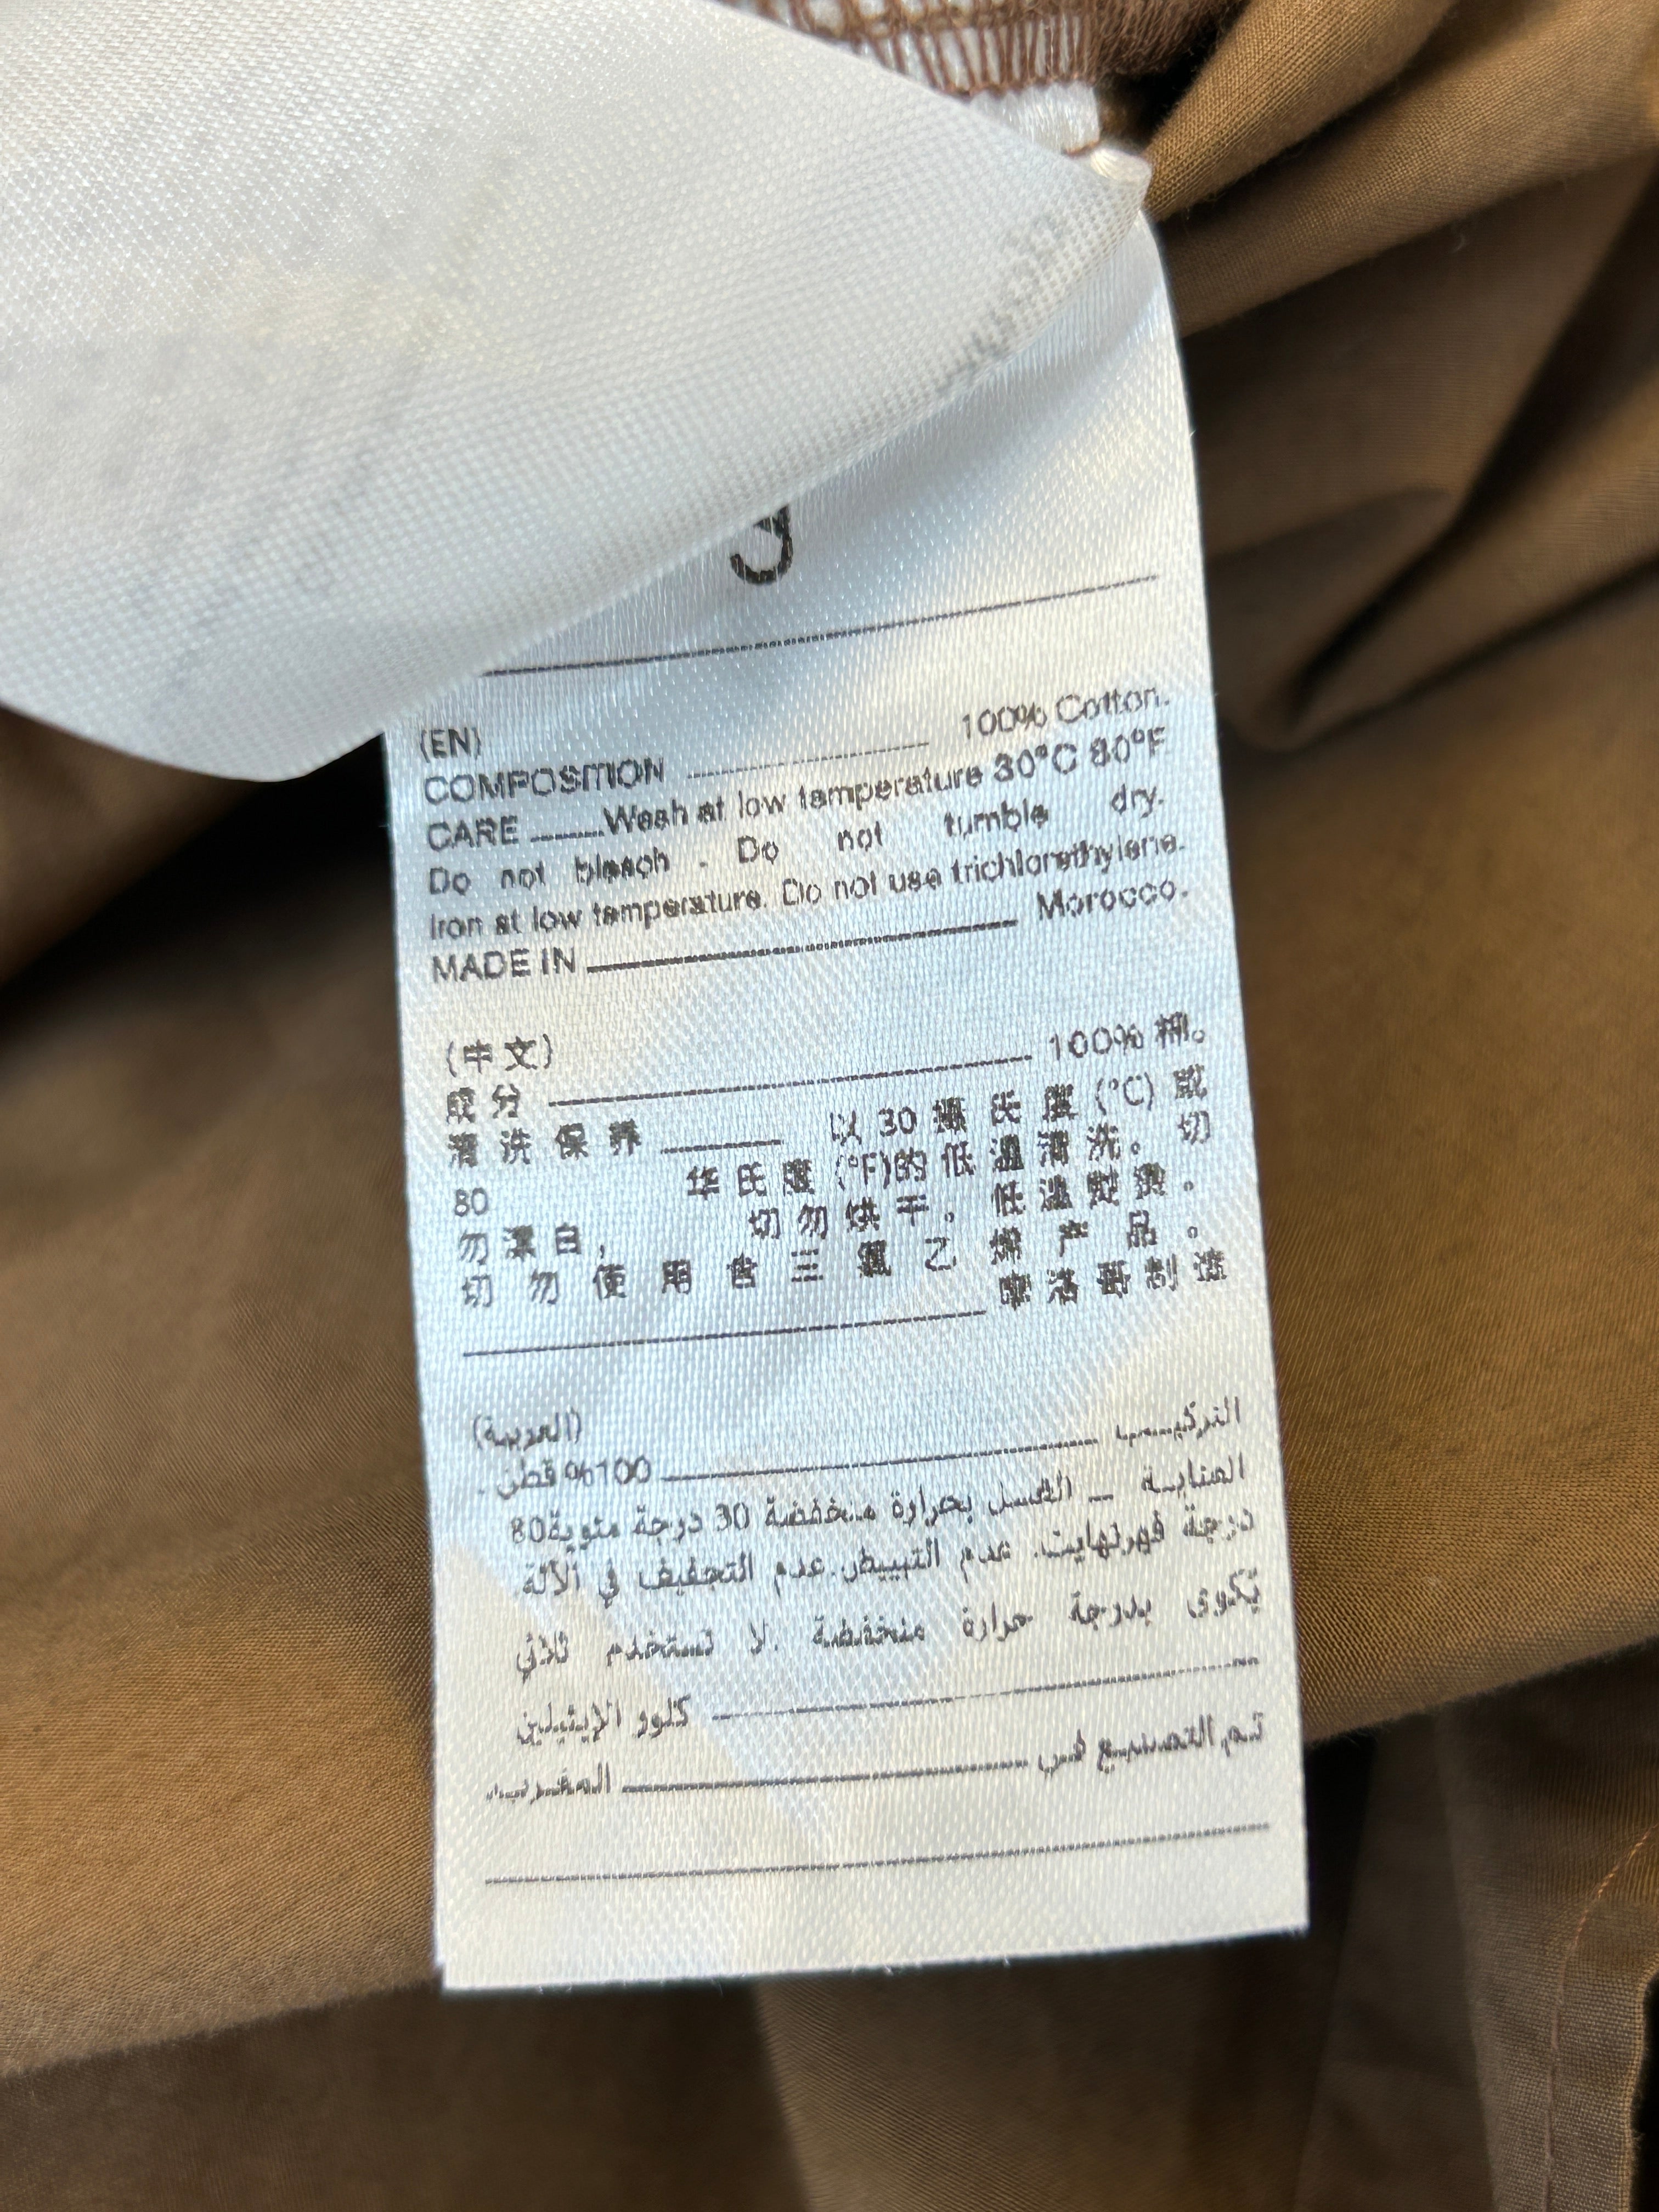 (EN)
COMPOSITION 100% Cotton.
CARE Wash at low temperature 30°C 80°F
Do not bleach - Do not tumble dry.
Iron at low temperature. Do not use trichlorethylene.
MADE IN Morocco.
(中文)
成分 100% 棉。
清洗保养 以 30 摄氏度 (°C) 或
80 华氏度 (°F)的低温清洗。切
勿漂白, 切勿烘干。低温熨烫。
切勿使用含三氯乙烯产品。
摩洛哥制造
(العربية)
التركيب
100% قطن.
العناية _ الغسل بحرارة منخفضة 30 درجة مئوية80
درجة فهرنهايت. عدم التبييض.عدم التجفيف في الآلة
تكوى بدرجة حرارة منخفضة .لا تستخدم ثلاثي
كلورو الإيثيلين
تم التصنيع في المغرب.